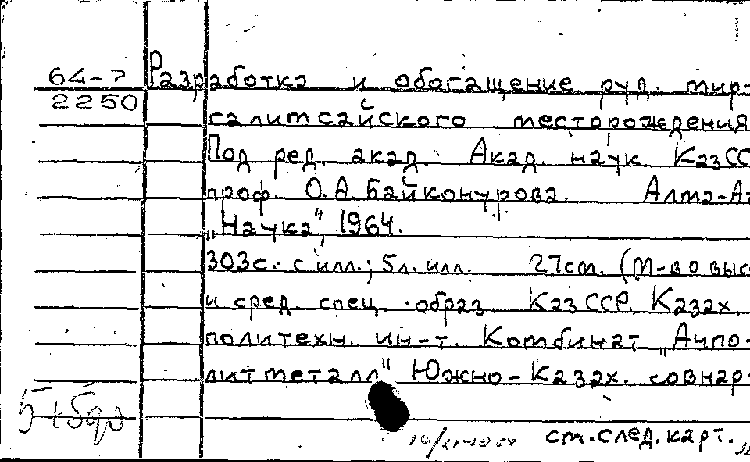 64-7
2250
Разработка и обогащение руд мир-
галимсайского месторождения
Под ред. акад. Акад. наук КазСС
проф. О.А. Байконурова. Алма-А
„Наука", 1964.
303с. с илл.; 5л. илл. 27см. (М-во выс
и сред. спец. образ. КазССР. Казах.
политехн. ин-т. Комбинат „Ачпо-
лиметалл" Южно-Казах. совнар
ст.след.карт.